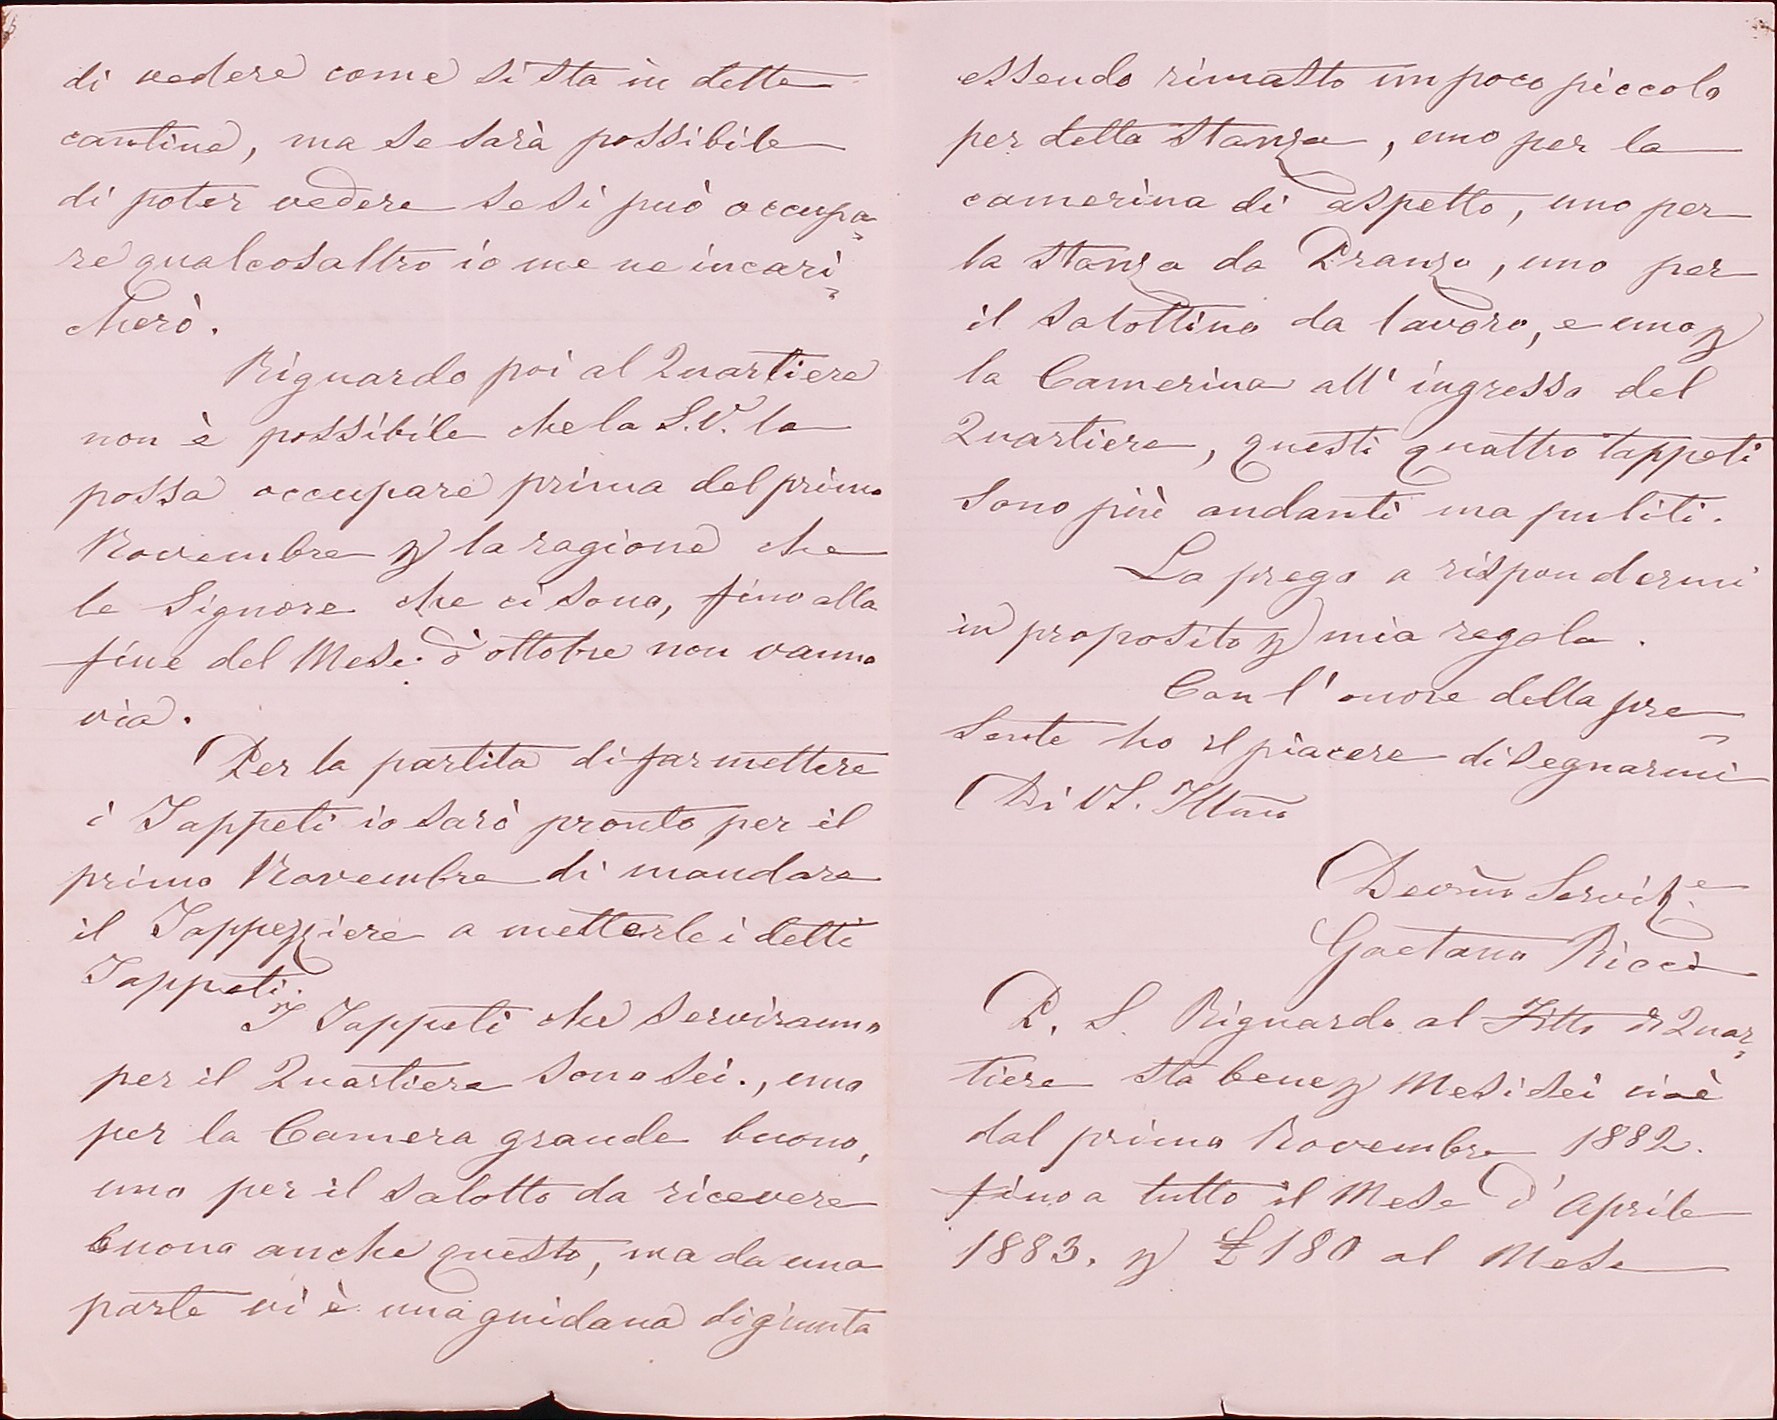 di vedere come si sta in dette
cantine, ma se sarà possibile
di poter vedere se si può occupa=
re qualcosaltro io me ne incari=
cherò.
Riguardo poi al Quartiere
non è possibile che la S.V. la
possa occupare prima del primo
Novembre p la ragione che
le Signore che ci sono, fino alla
fine del Mese d'ottobre non vanno
via.
Per la partita di far mettere
i Tappeti io sarò pronto per il
primo Novembre di mandare
il Tappezziere a metterle i detti
Tappeti.
I Tappeti che serviranno
per il Quartiere sono sei., uno
per la Camera grande buono,
uno per il salotto da ricevere
buono anche questo, ma da una
parte vi è una guidana digiunta
essendo rimasto un poco piccolo
per detta stanza, uno per la
camerina di aspetto, uno per
la stanza da Pranzo, uno per
il salottino da lavoro, e uno p
la Camerina all'ingresso del
Quartiere, questi quattro tappeti
sono più andanti ma puliti.
La prego a rispondermi
in proposito p mia regola.
Con l'onore della pre=
sente ho il piacere di segnarmi
Di VS. Illma
Devmo Servite
Gaetano Ricci
P. S. Riguardo al Fitto di Quar=
tiere sta bene p Mesi sei cioè
dal primo Novembre 1882.
fino a tutto il Mese d'Aprile
1883. p £ 180 al Mese